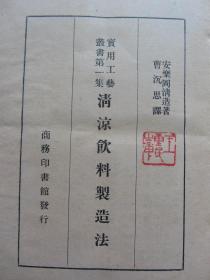 安樂岡清造著
曹沉思譯
實用工藝
叢書第一集
清涼飲料製造法
商務印書館發行